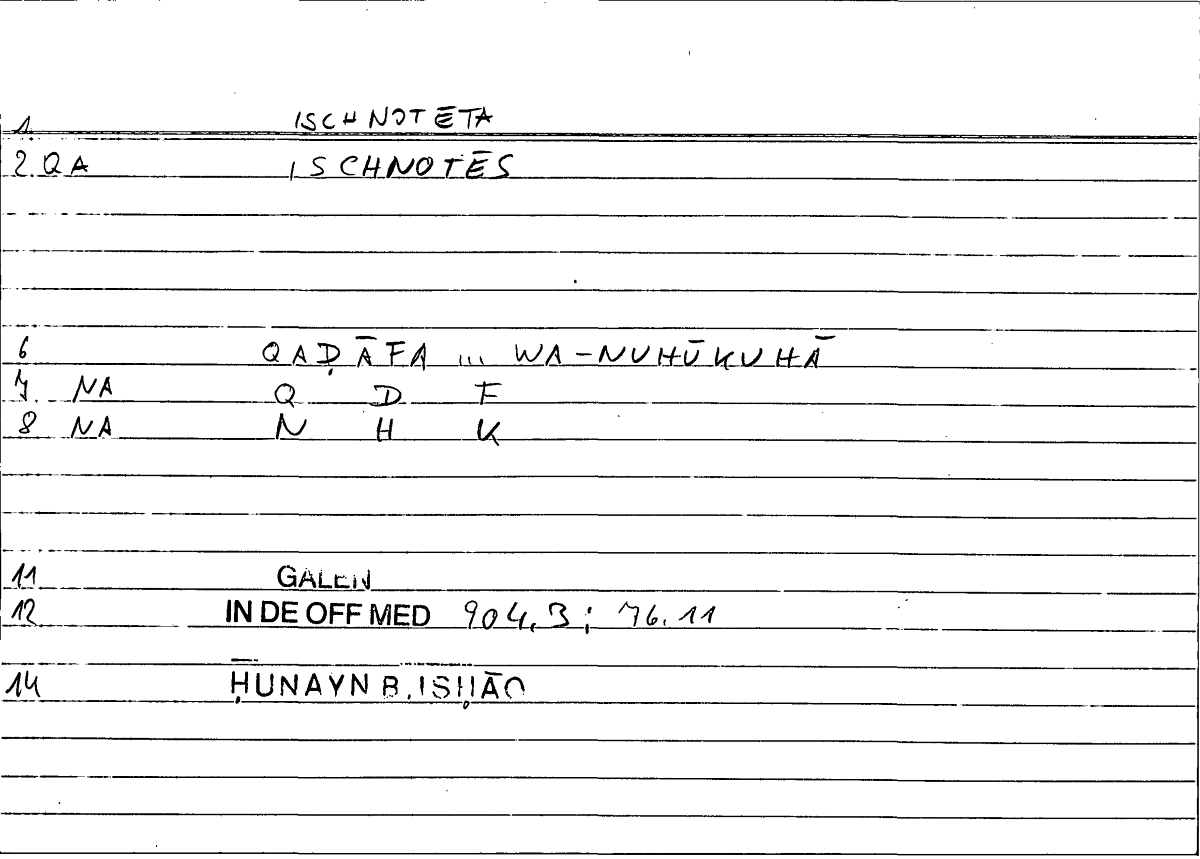 1. ISCHNOTĒTA
2. QA ISCHNOTĒS
6 QAḌĀFA ... WA-NUHŪKUHĀ
7. NA Q D F
8 NA N H K
11 GALEN
12 IN DE OFF MED 904,3; 76.11
14 ḤUNAYN B. ISḤĀQ